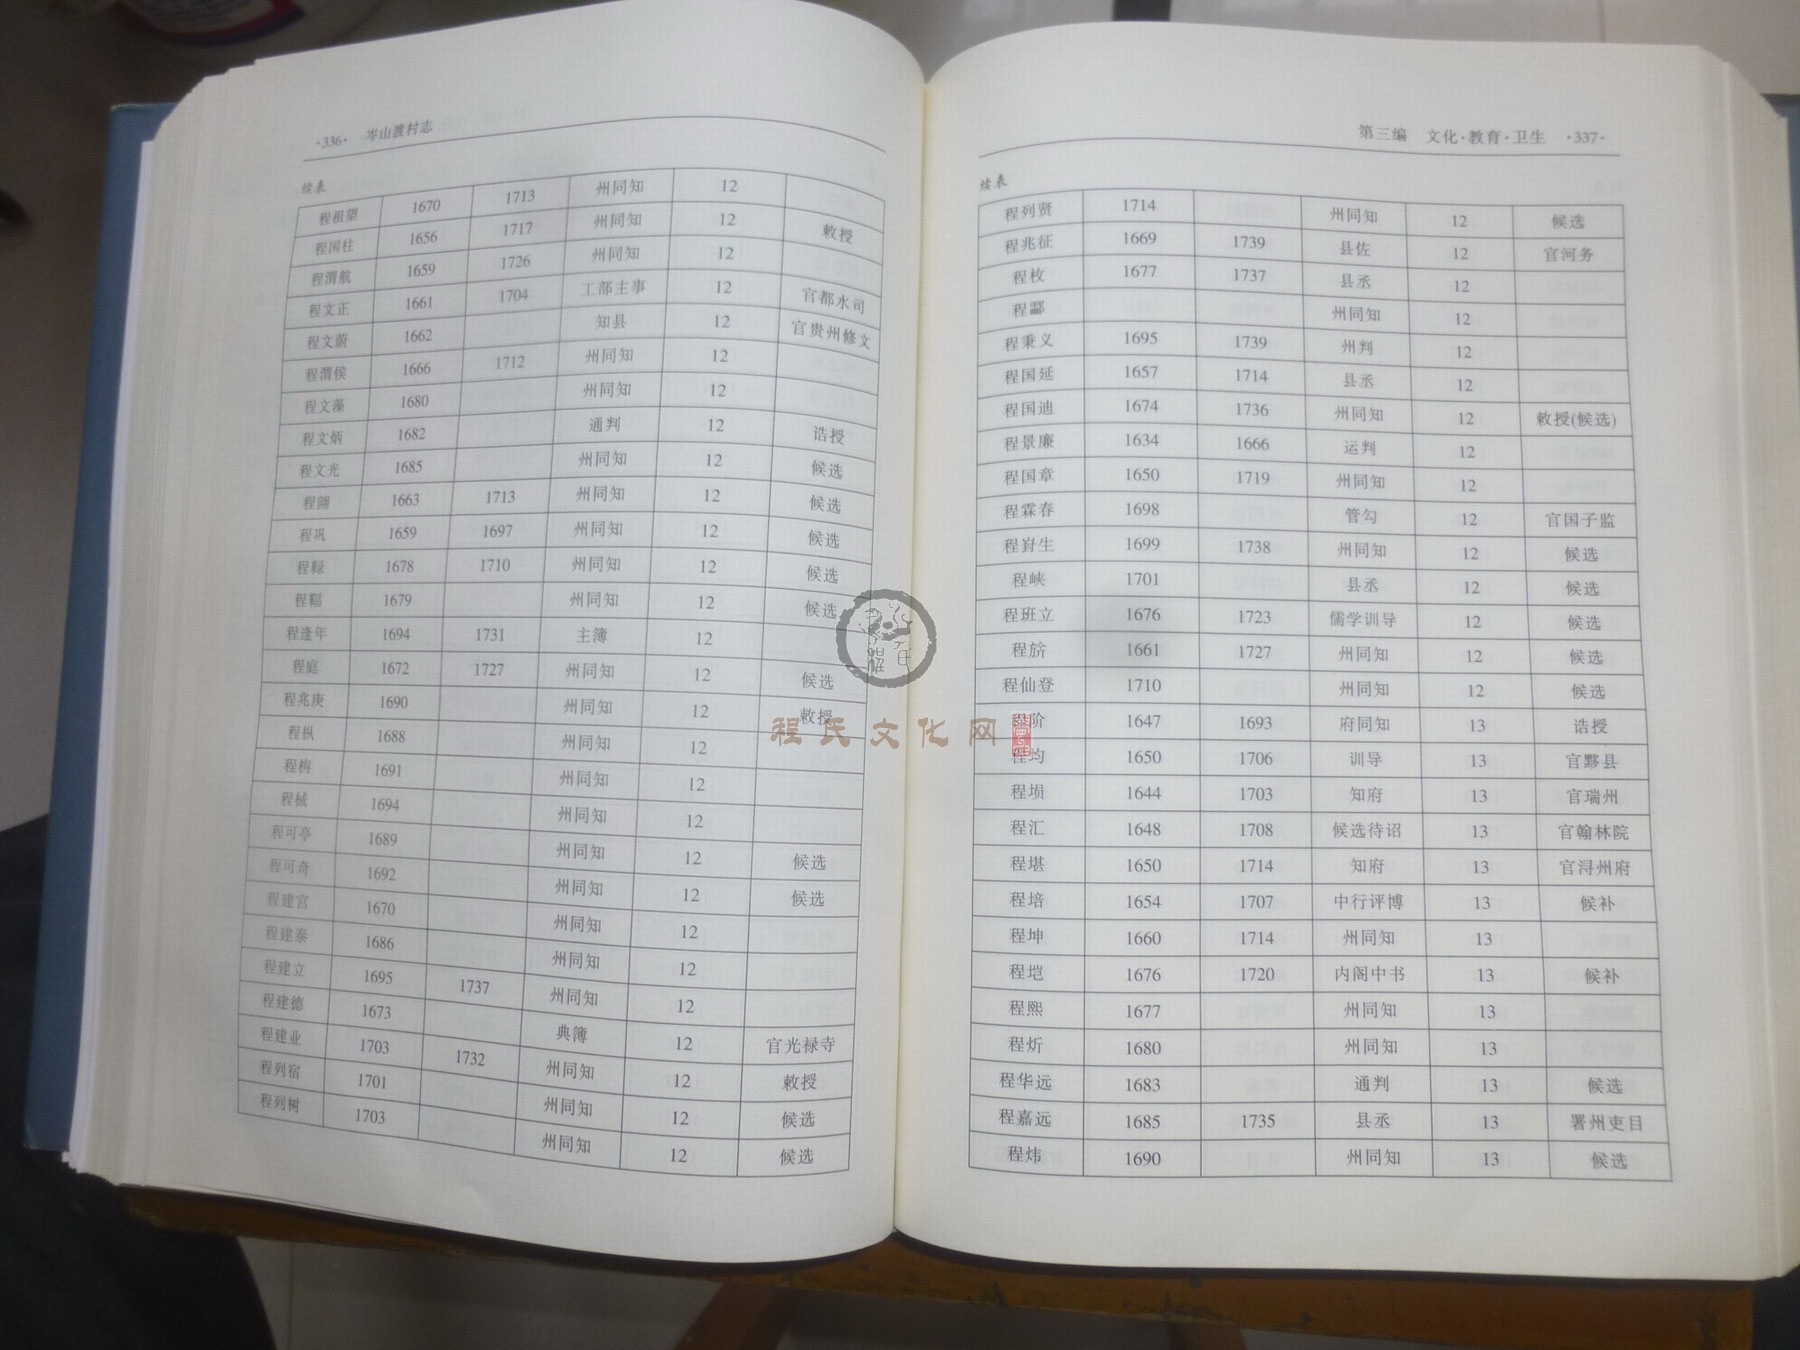 ·336· 岑山渡村志
续表
程祖望 1670 1713 州同知 12
程国柱 1656 1717 州同知 12 敕授
程渭航 1659 1726 州同知 12
程文正 1661 1704 工部主事 12 官都水司
程文蔚 1662 知县 12 官贵州修文
程渭侯 1666 1712 州同知 12
程文藻 1680 州同知 12
程文炳 1682 通判 12 诰授
程文光 1685 州同知 12 候选
程 1663 1713 州同知 12 候选
程巩 1659 1697 州同知 12 候选
程 1678 1710 州同知 12 候选
程 1679 州同知 12 候选
程逢年 1694 1731 主簿 12
程庭 1672 1727 州同知 12 候选
程兆庚 1690 州同知 12 敕授
程枞 1688 州同知 12
程 1691 州同知 12
程械 1694 州同知 12
程可亭 1689 州同知 12 候选
程可奇 1692 州同知 12 候选
程建宫 1670 州同知 12
程建泰 1686 州同知 12
程建立 1695 1737 州同知 12
程建德 1673 典簿 12 官光禄寺
程建业 1703 1732 州同知 12 敕授
程列宿 1701 州同知 12 候选
程列树 1703 州同知 12 候选
第三编 文化·教育·卫生 ·337·
续表
程列贤 1714 州同知 12 候选
程兆征 1669 1739 县佐 12 官河务
程枚 1677 1737 县丞 12
程酃 州同知 12
程秉义 1695 1739 州判 12
程国延 1657 1714 县丞 12
程国迪 1674 1736 州同知 12 敕授(候选)
程景廉 1634 1666 运判 12
程国章 1650 1719 州同知 12
程霖春 1698 管勾 12 官国子监
程崶生 1699 1738 州同知 12 候选
程峡 1701 县丞 12 候选
程班立 1676 1723 儒学训导 12 候选
程 1661 1727 州同知 12 候选
程仙登 1710 州同知 12 候选
程阶 1647 1693 府同知 13 诰授
程均 1650 1706 训导 13 官黟县
程埙 1644 1703 知府 13 官瑞州
程汇 1648 1708 候选待诏 13 官翰林院
程堪 1650 1714 知府 13 官浔州府
程培 1654 1707 中行评博 13 候补
程坤 1660 1714 州同知 13
程垲 1676 1720 内阁中书 13 候补
程熙 1677 州同知 13
程炘 1680 州同知 13
程华远 1683 通判 13 候选
程嘉远 1685 1735 县丞 13 署州吏目
程炜 1690 州同知 13 候选
程氏文化网